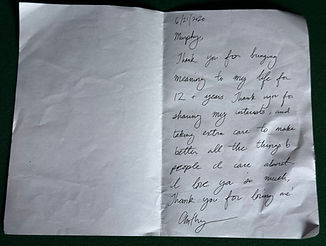 6/21/2020
Murphy,
Thank you for bringing
meaning to my life for
12 + years. Thank you for
sharing my interests, and
taking extra care to make
better all the things &
people I care about.
I love ya so much,
Thank you for loving me!